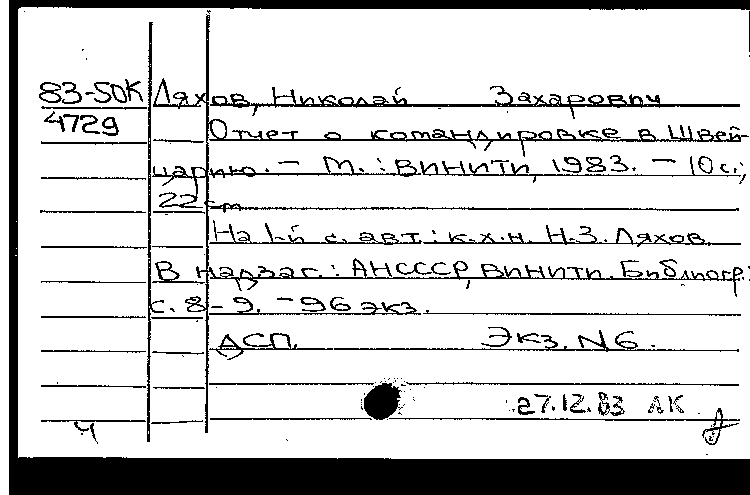 83-50К Ляхов, Николай Захарович
4729 Отчет о командировке в Швей-
царию. — М.: ВИНИТИ, 1983. — 10 с.;
22 см
На 1-й с. авт.: к.х.н. Н.З. Ляхов.
В надзаг.: АНСССР, ВИНИТИ. Библиогр.:
с. 8-9. - 96 экз.
ДСП. Экз. N6.
27.12.83 ЛК
Ч